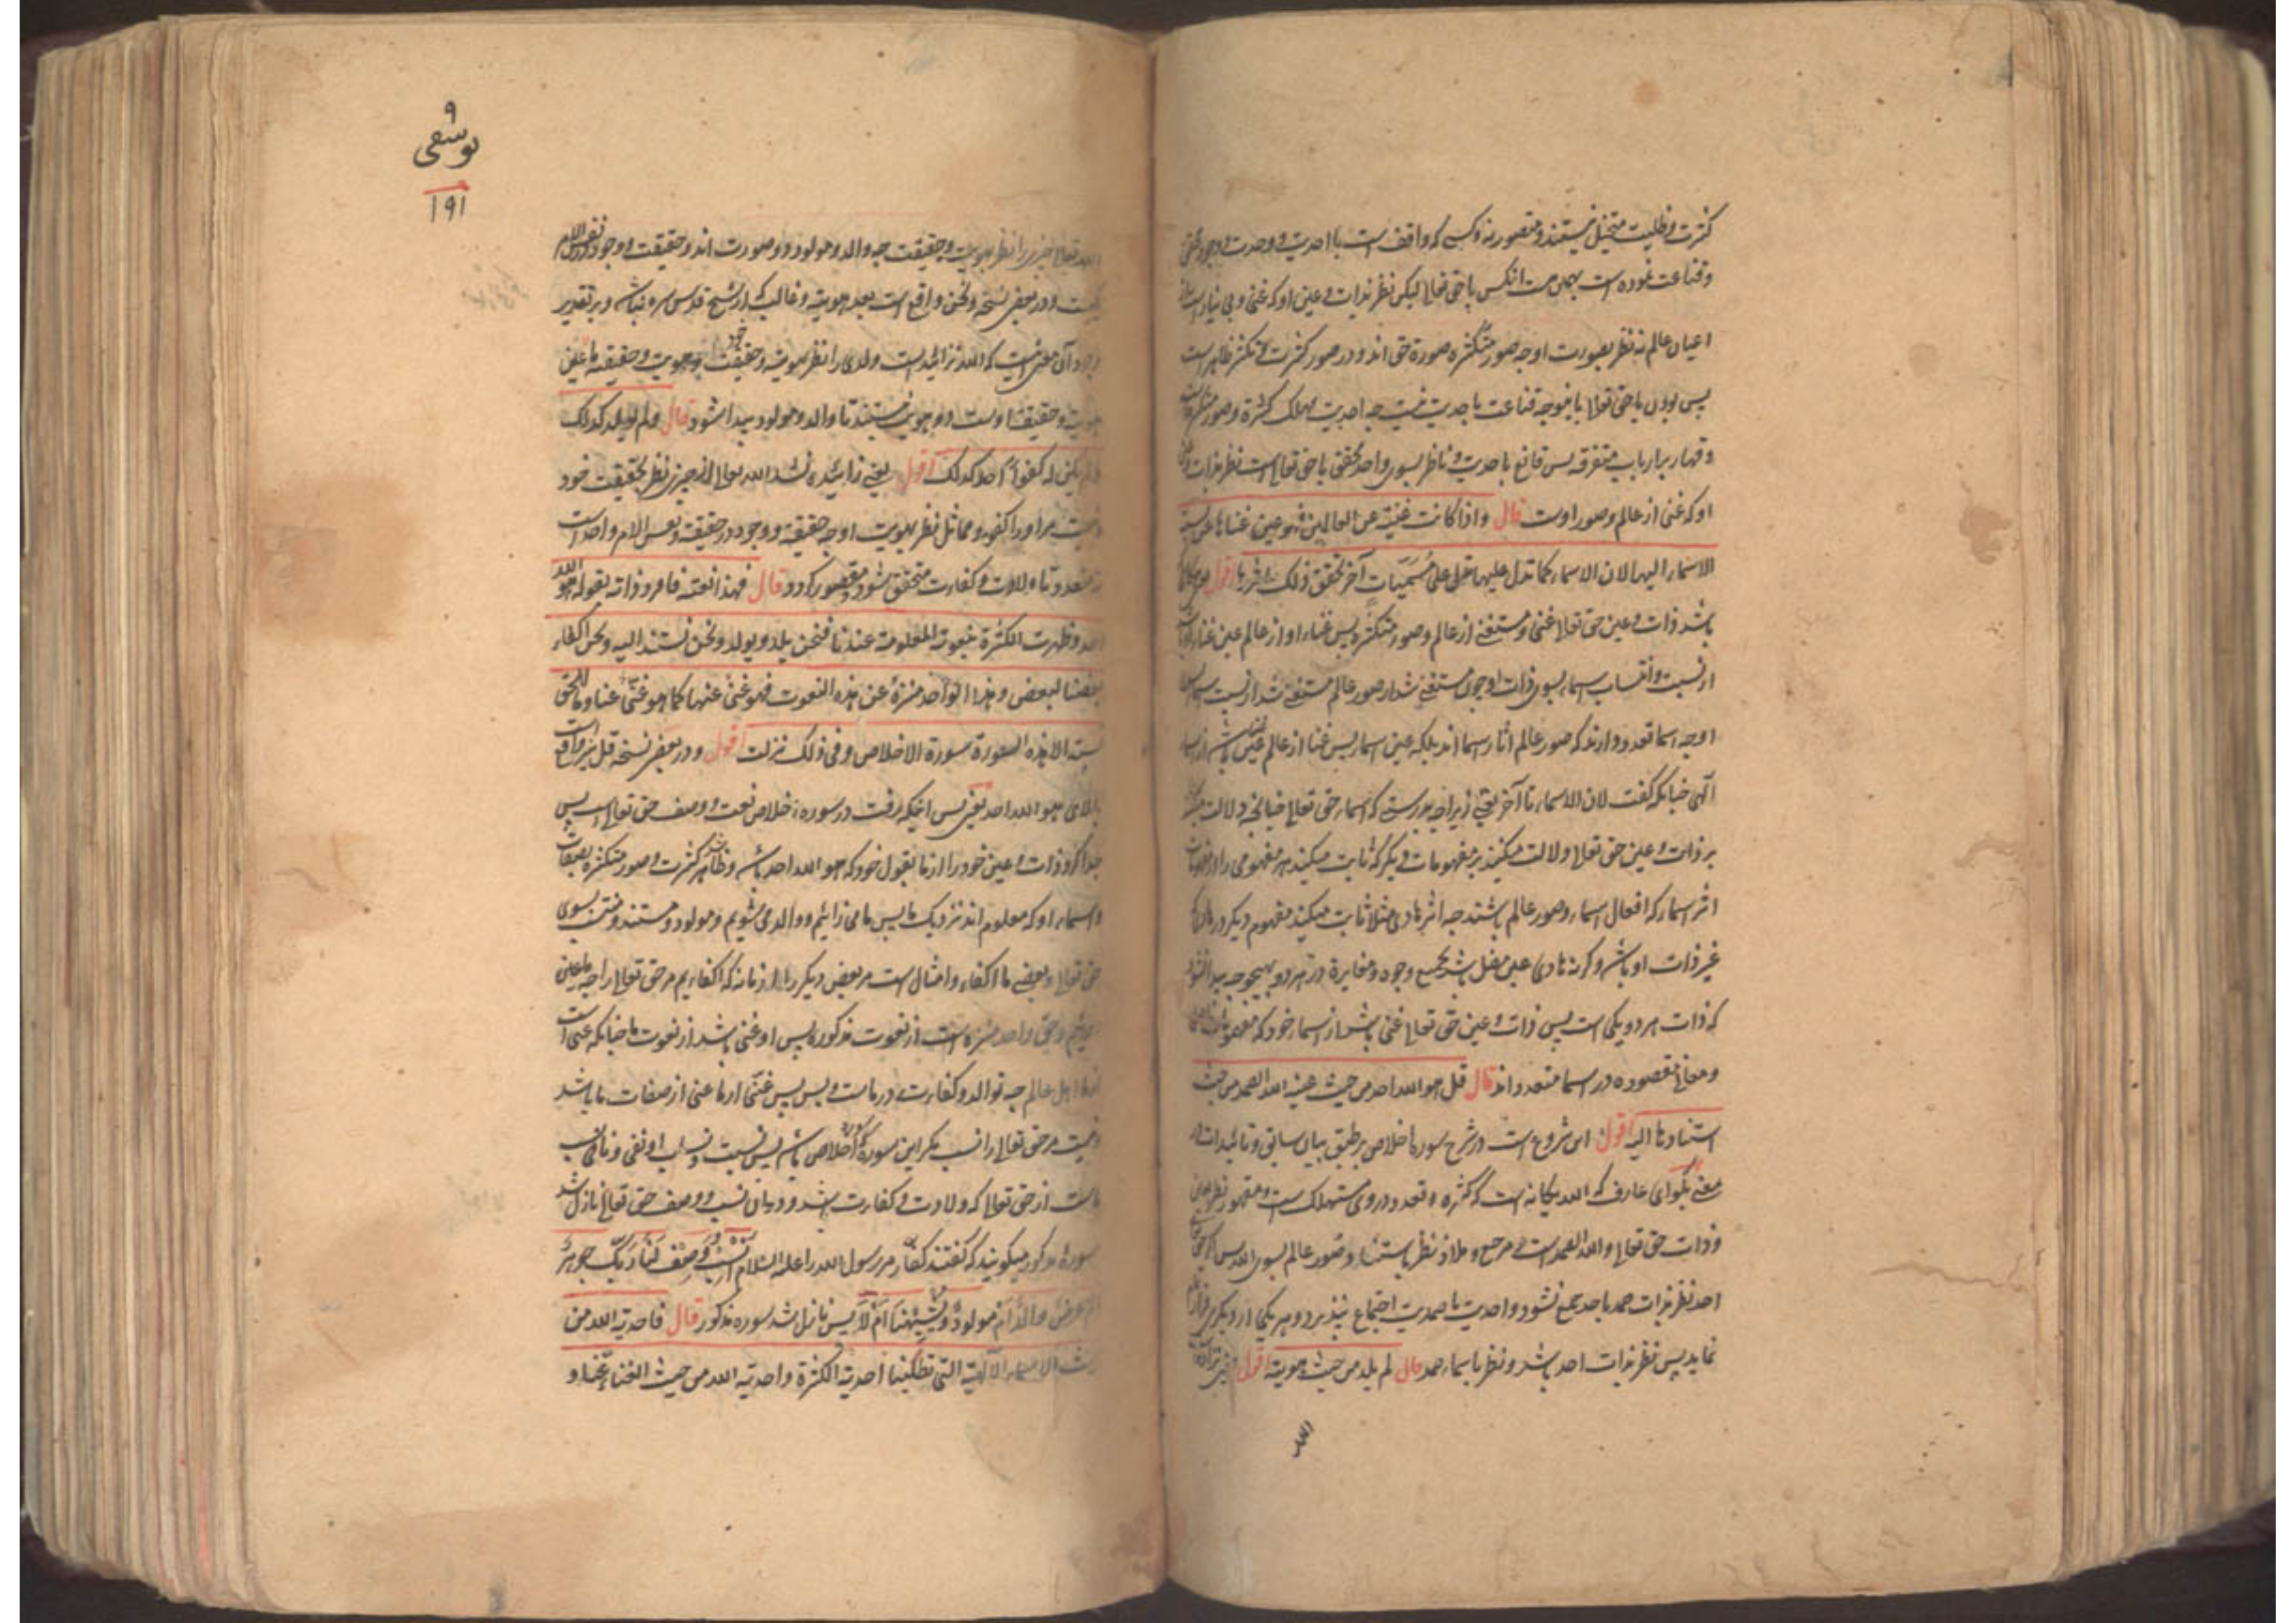 کثرت و ظلیت متخیل نیستند و متصور نه و کسی که واقف است با احدیت و وحدت وجود حق
و قناعت نموده است بهمین است انکس با حق تعالی لیکن نظر بذات و عین او که غنی و بی نیاز است از
اعیان عالم نه نظر بصورت او چه صور متکثره صورة حق اند و در صور کثرت و تکثر ظاهر است
پس بودن با حق تعالی باینوجه قناعت باحدیت نیست چه احدیت مهلک کثرة و صور متکثره است
و قهار بر ارباب متفرقه پس قانع باحدیت و ناظر بسوی واحد تحقق با حق تعالی است نظر بذات و عین
او که غنی از عالم و صور اوست قال و اذا کانت غنیة عن العالمین فهو عین غناها عن نسبة
الاسماء الیها لان الاسماء کما تدل علیها تدل علی مسمیات آخر تحقق ذلک اثرها اقول
باشد ذات و عین حق تعالی غنی و مستغنی از عالم و صور متکثره پس غناء او از عالم عین غناء
از نسبت و انتساب اسماء بسوی ذات او چون مستغنی شد از صور عالم مستغنی شد از نسبت اسماء
او چه اسما تعدد دارند که صور عالم اثار اسما اند بلکه عین اسما پس غنا از عالم عین غنا باشد از اسماء
آلهی چنانکه گفت لان الاسماء تا آخر یعنی زیراچه بدرستی که اسماء حق تعالی چنانچه دلالت میکنند
بر ذات و عین حق تعالی دلالت میکنند بر مفهومات دیگر که ثابت میکند هر مفهومی را
اثر اسماء که افعال اسماء و صور عالم باشند چه اثر هادی مثلا ثابت میکند مفهوم دیگر در هادی که
غیر ذات او باشد و گرنه هادی عین مضل باشد بجمیع وجوه و مغایرة در هر دو بهیچ وجه پیدا نشود
که ذات هر دو یکی است پس ذات و عین حق تعالی غنی باشد از اسماء خود که
و معانی مقصوده در اسما متعدد اند قال قل هو الله احد من حیث عینه الله الصمد من حیث
استنادنا الیه اقول این شروع است در شرح سوره اخلاص بر طبق بیان سابق و تائید است از
معنی بگو ای عارف که الله یگانه است که کثره و تعدد در وی مستهلک است و مقهور نظر بعین
و ذات حق تعالی و الله الصمد است و مرجع و ملاذ نظر باستناد و صور عالم بسوی الله پس
احد نظر بذات صمد با احد جمع نشود و احدیت با صمدیت اجتماع نپذیرد و هر یکی از دیگری
نماید پس نظر بذات احد باشد و نظر باسماء صمد قال لم یلد من حیث هویته اقول
الله
۹
یوسفی
۱۹۱
الله تعالی چیزی را نظر بهویت و حقیقت چه والد و مولود دو صورت اند و حقیقت و وجود در نفس الامر
یکیست و در بعض نسخه و نحن واقع است بعد هویته و غالب که از شیخ قدس سره نباشد و بر تقدیر
وجود آن معنی اینست که الله نزائیده است ولدی را نظر بهویته و حقیقت خود و هویت و حقیقه ما عین
هویت و حقیقة اوست و دو هویت نیستند تا والد و مولود پیدا شود قال و لم یولد کذلک
و لم یکن له کفوا احد کذلک اقول یعنی زائیده نشد الله تعالی از چیزی نظر بحقیقت خود
و نیست مر او را کفو و مماثل نظر بهویت او چه حقیقة و وجود در حقیقة و نفس الامر واحد است
نه متعدد تا ولادت و کفاءت متحقق شود و متصور گردد قال فهذا نعته فافرد ذاته بقوله هو الله
احد و ظهرت الکثرة بنعوته المعلومة عندنا فنحن نلد و نولد و نحن نستند الیه و نحن اکفاء
بعضنا لبعض و هذا الواحد منزه عن هذه النعوت فهو غنی عنها کما هو غنی عنا و ما للحق
نسبة الا هذه السورة سورة الاخلاص و فی ذلک نزلت اقول و در بعض نسخه قبل
بالای هو الله احد یعنی پس اینکه رفت در سوره اخلاص نعت و وصف حق تعالی است پس
جدا کرد ذات و عین خود را از ما بقول خود که هو الله احد باشد و ظاهر شد کثرت و صور متکثره بصفات
و اسماء او که معلوم اند نزدیک ما پس ما می زائیم و والد می شویم و مولود و مستند و منتسب بسوی
حق تعالی و بعضی ما اکفاء و امثال است مر بعض دیگر را از ما نه که اکفائیم مر حق تعالی را چه ما عین
هویتیم و حق واحد منزه است از نعوت مذکوره پس او غنی باشد از نعوت ما چنانکه غنی است
از ما اهل عالم چه توالد و کفاءت در ماست و بس پس غنی از ما غنی از صفات ما باشد
و نیست مر حق تعالی را نسب مگر این سوره که اخلاص باشد پس نسبت و نسب او نفی
ماست از حق تعالی که ولادت و کفاءت باشد و در بیان نسب و وصف حق تعالی نازل شد
سوره مذکور میگویند که گفتند کفار مر رسول الله را علیه السلام انسب و صف لنا ربک جوهر
ام عرض والد ام مولود و یشبهنا ام لا پس نازل شد سوره مذکور قال فاحدیة الله من
حیث الاسماء الالهیة التی تطلبنا احدیة الکثرة و احدیة الله من حیث الغناء عنا و